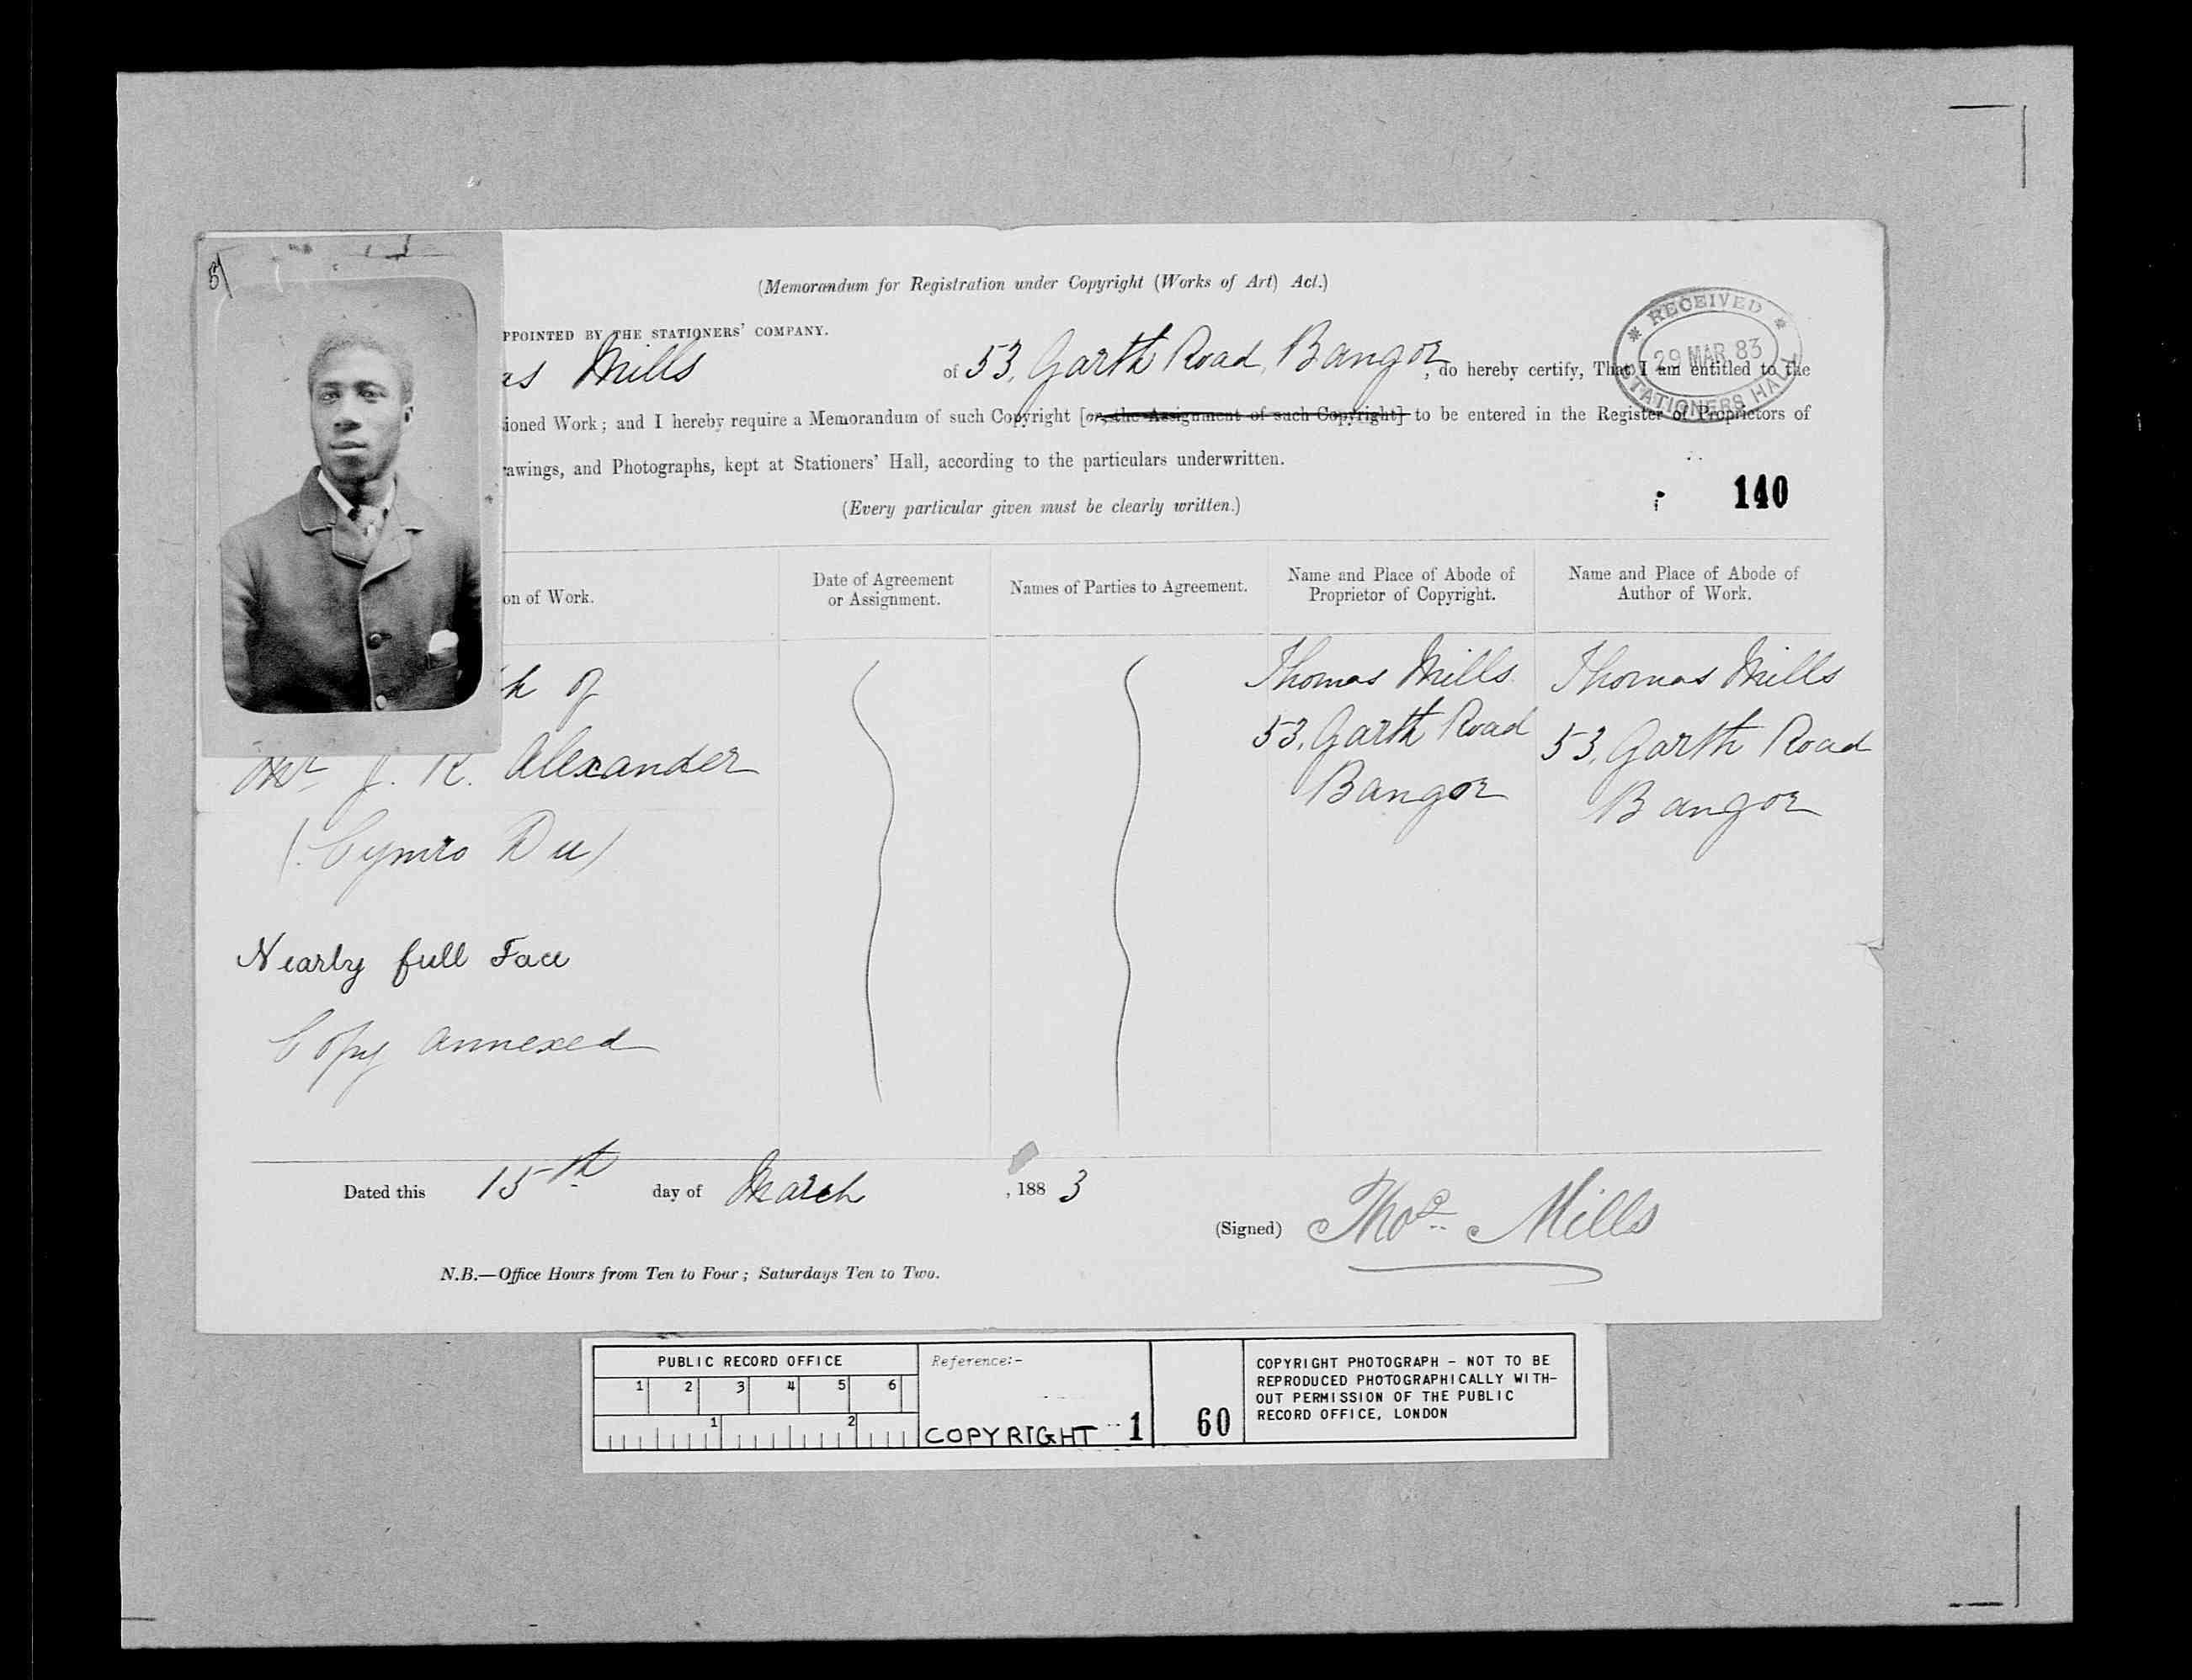 51
(Memorandum for Registration under Copyright (Works of Art) Act.)
PPOINTED BY THE STATIONERS' COMPANY.
as Mills of 53, Garth Road, Bangor, do hereby certify, That I am entitled to the
ioned Work; and I hereby require a Memorandum of such Copyright [or, the Assignment of such Copyright] to be entered in the Register of Proprietors of
rawings, and Photographs, kept at Stationers' Hall, according to the particulars underwritten.
(Every particular given must be clearly written.)
* RECEIVED *
29 MAR. 83
STATIONERS HALL
140
on of Work.
Date of Agreement
or Assignment.
Names of Parties to Agreement.
Name and Place of Abode of
Proprietor of Copyright.
Name and Place of Abode of
Author of Work.
h of
Mr J. R. Alexander
(Cymro Du)
Nearly full Face
Copy annexed
Thomas Mills
53, Garth Road
Bangor
Thomas Mills
53, Garth Road
Bangor
Dated this 15th day of March, 1883
(Signed) Thos Mills
N.B.—Office Hours from Ten to Four; Saturdays Ten to Two.
PUBLIC RECORD OFFICE
1 2 3 4 5 6
1 2
Reference:-
COPYRIGHT 1
60
COPYRIGHT PHOTOGRAPH - NOT TO BE
REPRODUCED PHOTOGRAPHICALLY WITH-
OUT PERMISSION OF THE PUBLIC
RECORD OFFICE, LONDON